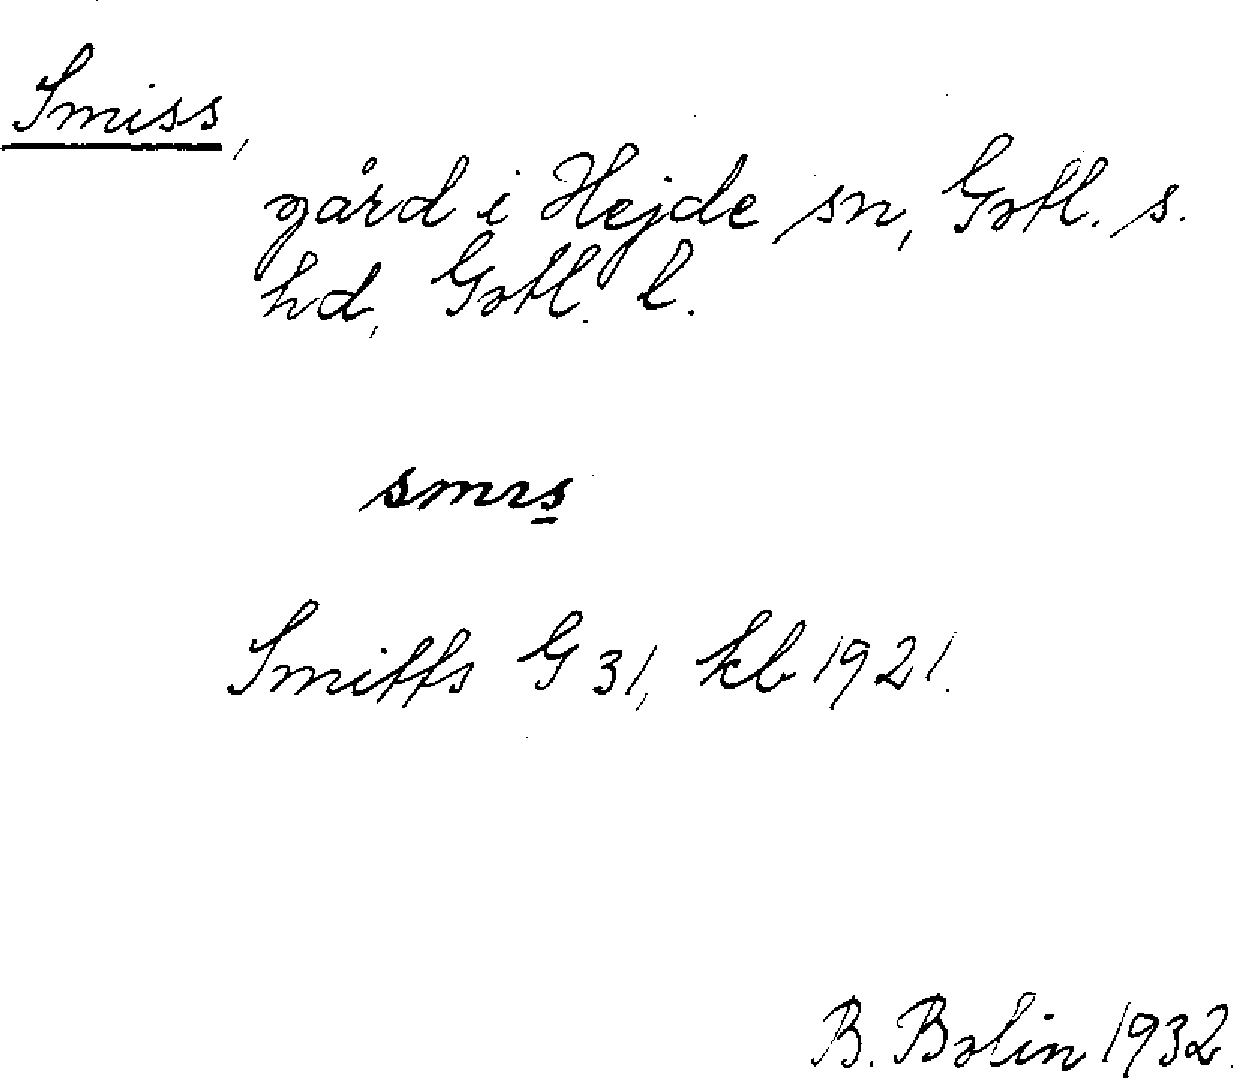 Smiss,
gård i Hejde sn, Gotl. s.
hd, Gotl. l.
smɩs
Smitts G 31, kb 1921.
B. Bolin 1932.